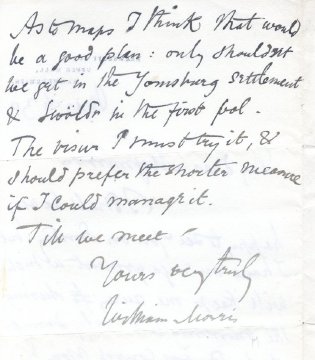 As to maps I think that would
be a good plan: only shouldn't
we get in the Jomsburg settlement
& Swoldr in the first vol.
The visur I must try it, &
should prefer the shorter measure
if I could manage it.
Till we meet
Yours very truly
William Morris